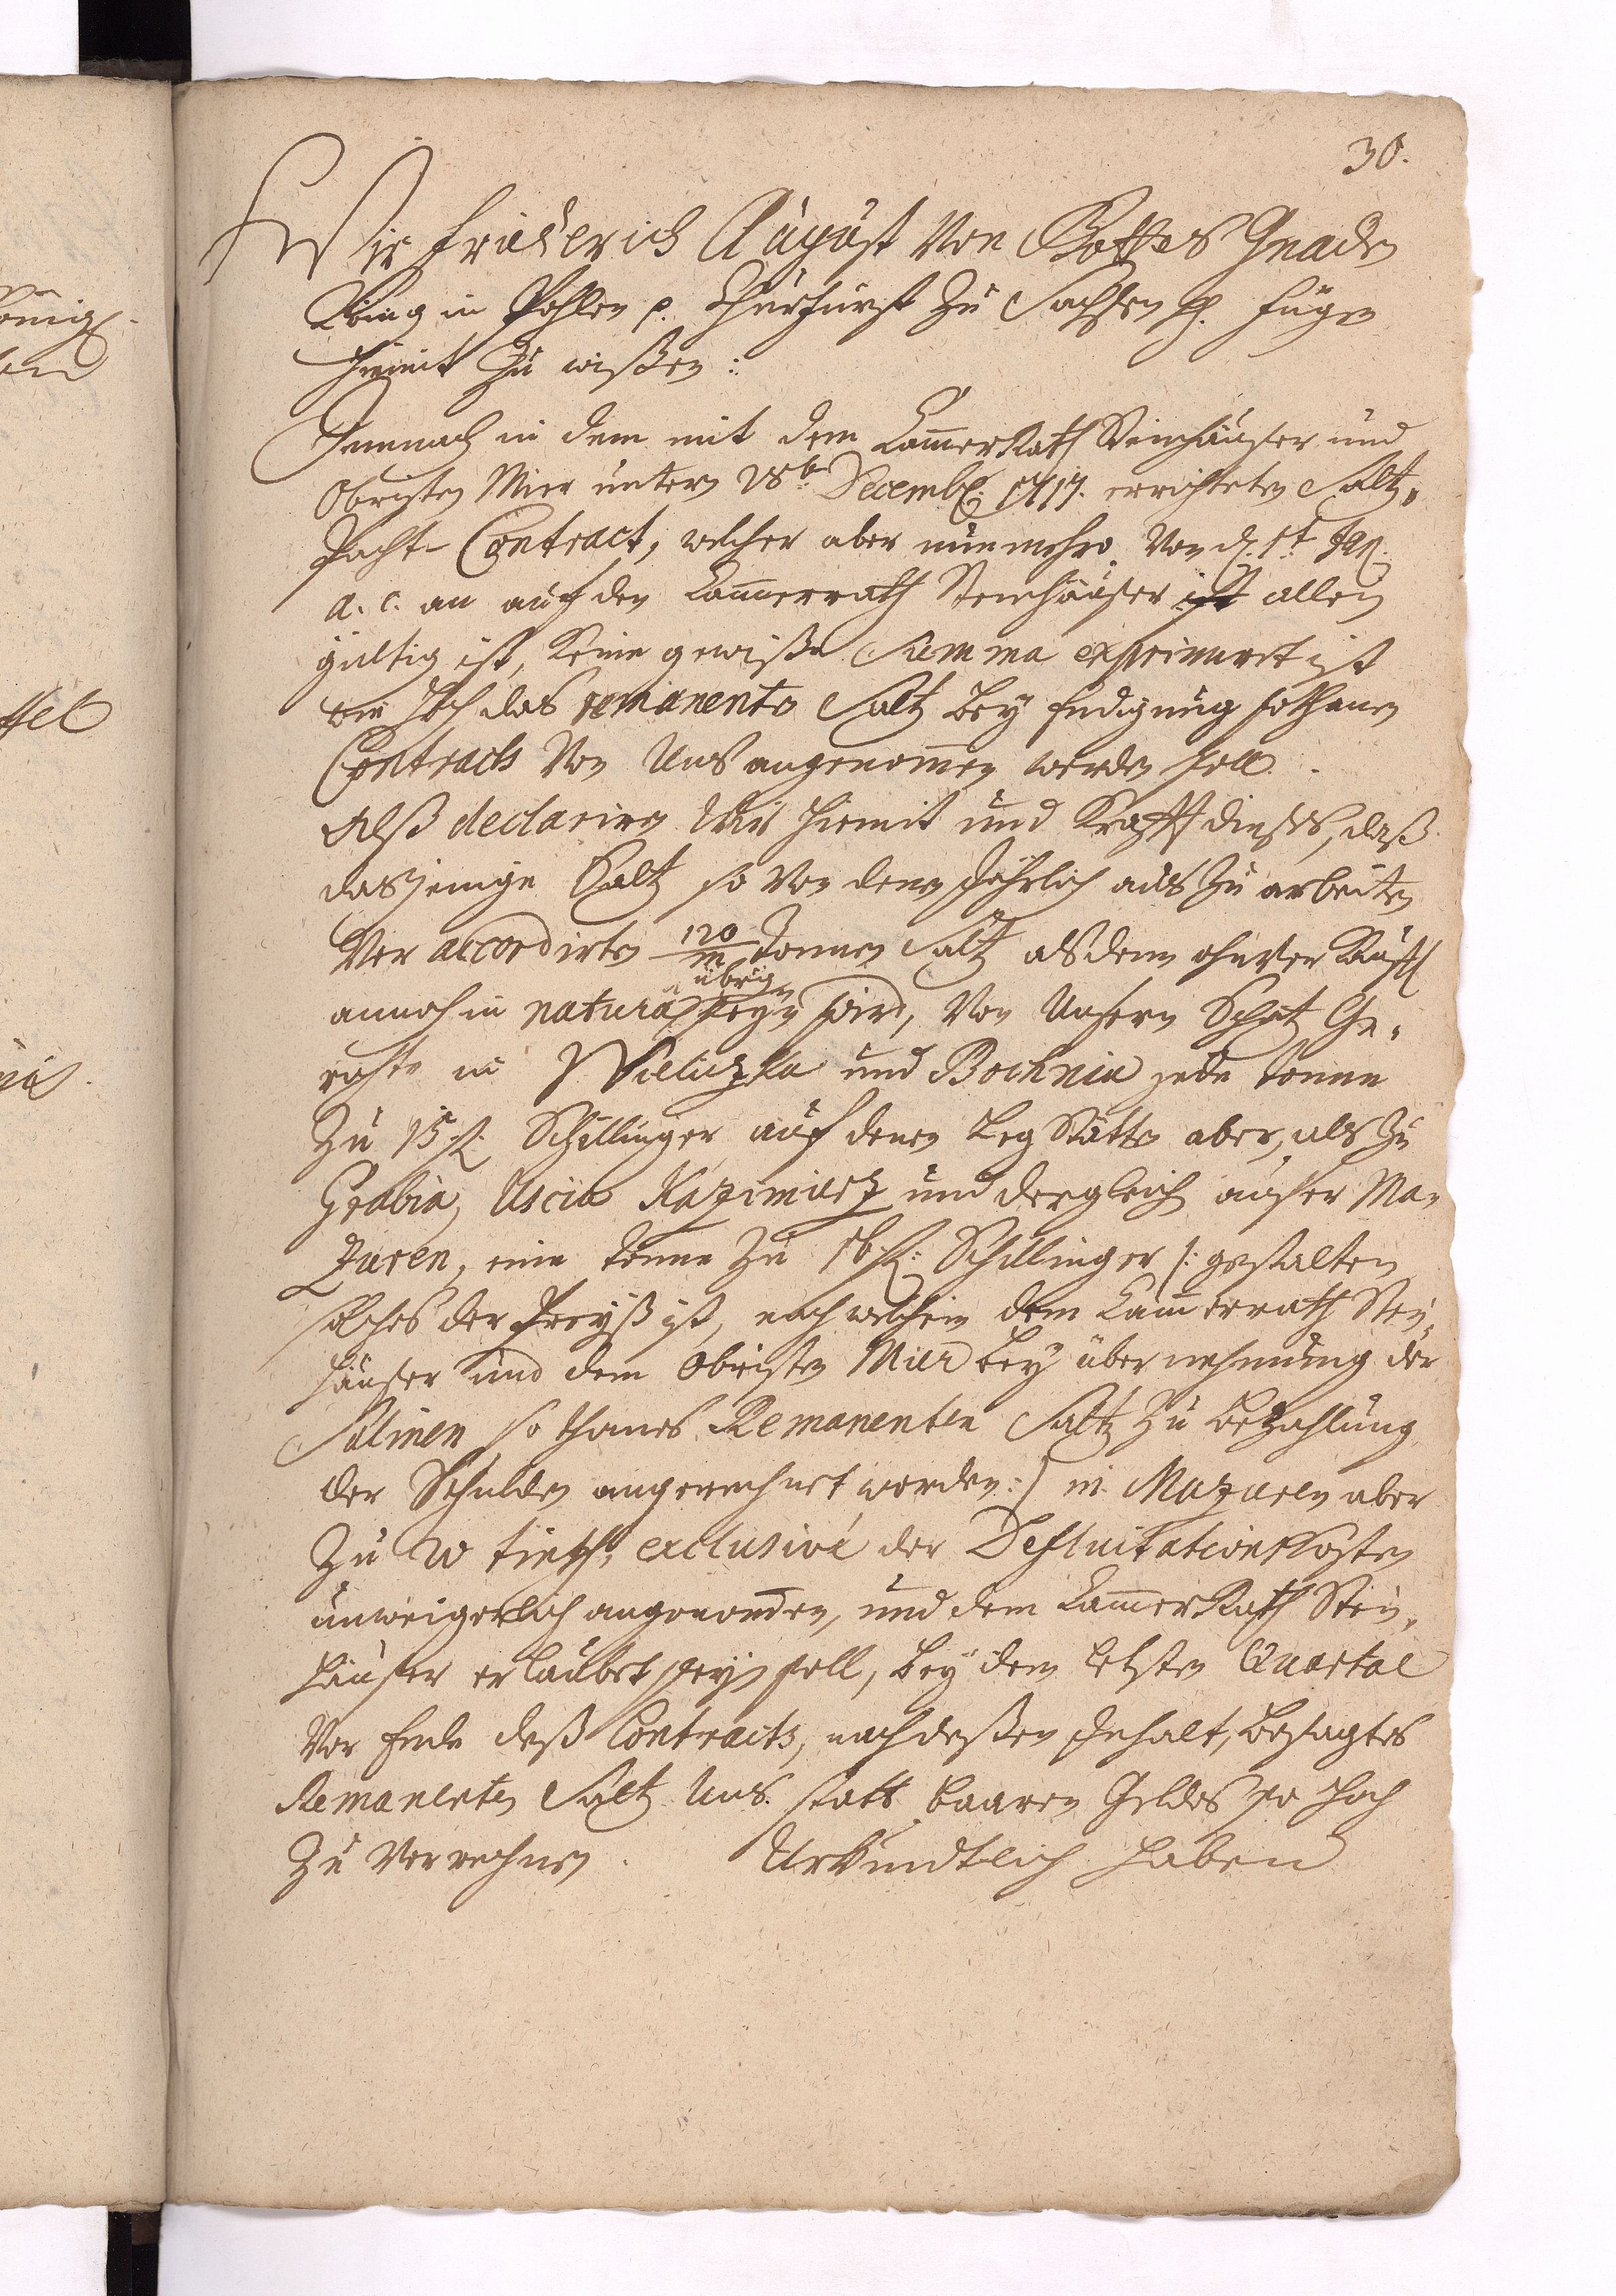 30.
Wir Friederich August Von Gottes Gnaden
König in Pohlen p. Churfürst Zu Sachßen pp. fügen
hiemit Zu wißen:
Demnach in dem mit dem Cam̅erRath Steinhäuser und
Obristen Mier unterm 28t Decembr: 1717. errichteten Saltz-
Pacht-Contract, welcher aber nunmehro Von d. 1t
a. c. an auf den Cam̅errath Steinhäuser ist allein
gültig ist, keine gewiße Summa exprimiret ist
wie hoch das remanente Saltz bey Endigung sothanen
Contracts Von Uns angenom̅en werden soll.
Alß declariren Wir hiermit und Krafft dießes, daß
dasjenige Saltz so Von denen Jährlich aus Zu arbeiten
Ver accordirten 120/m Tonnen Saltz alsdenn ohnverkaufft
annoch in natura übrig seyn wird, Von Unsern Schatz Ge-
richte in Wieliczka und Bochnia jede Tonne
Zu 15 fl. Schillinger auf denen Leg Stätten aber, als Zu
Grabia, Uscie Kazimierz und dergleich außer Ma-
zuren, eine Tonne Zu 16 fl: Schillinger /: gestalten
solches der Preyß ist, nach welchem dem Cam̅errath Stein-
häuser und dem Obristen Mier bey übernehmung der
Salinen so thanes Remanenten Saltz Zu bezahlung
der Schulden angerechnet worden :/ in Mazuren aber
Zu exclusivé der Defluitations Kosten
unweigerlich angenom̅en, und dem Cam̅erRath Stein-
häuser erlaubet seyn soll, bey dem letzten Quartal
Vor Ende deß Contracts, nach deßen Inhalt, besagtes
Remanenten Saltz Uns. statt baaren Geldes so hoch
Zu Verrechnen. Urkundtlich haben